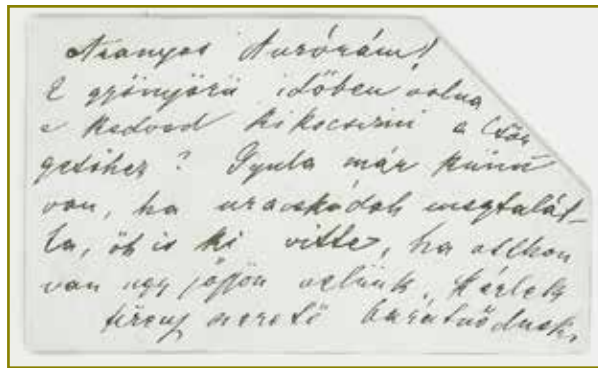 Aranyos Aurórám!
E gyönyörű időben volna
e kedved kikocsizni a Csör
getőhez? Gyula már künn
van, ha uracskádat megtalál-
ta, őt is ki vitte, ha otthon
van ugy jöjjön velünk.
szerető barátnődnek